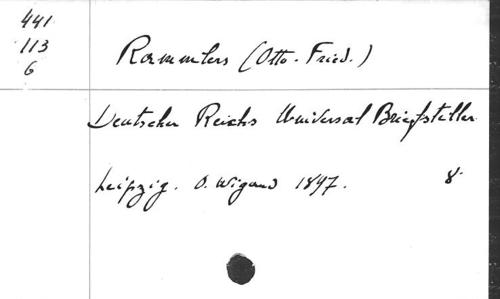 441
113
6
Rammlers (Otto. Fried.)
Deutscher Reichs Universal Briefsteller
Leipzig. O. Wigand 1897. 8°